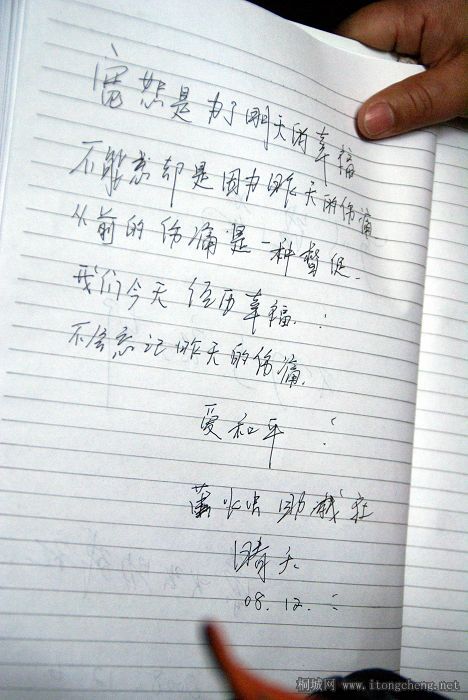 宽恕是为了明天的幸福
不能忘却是因为昨天的伤痛
从前的伤痛是一种督促.
我们今天经历幸福.
不会忘记昨天的伤痛.
爱和平
助残
晴天
08.12.
桐城网 www.itongcheng.net